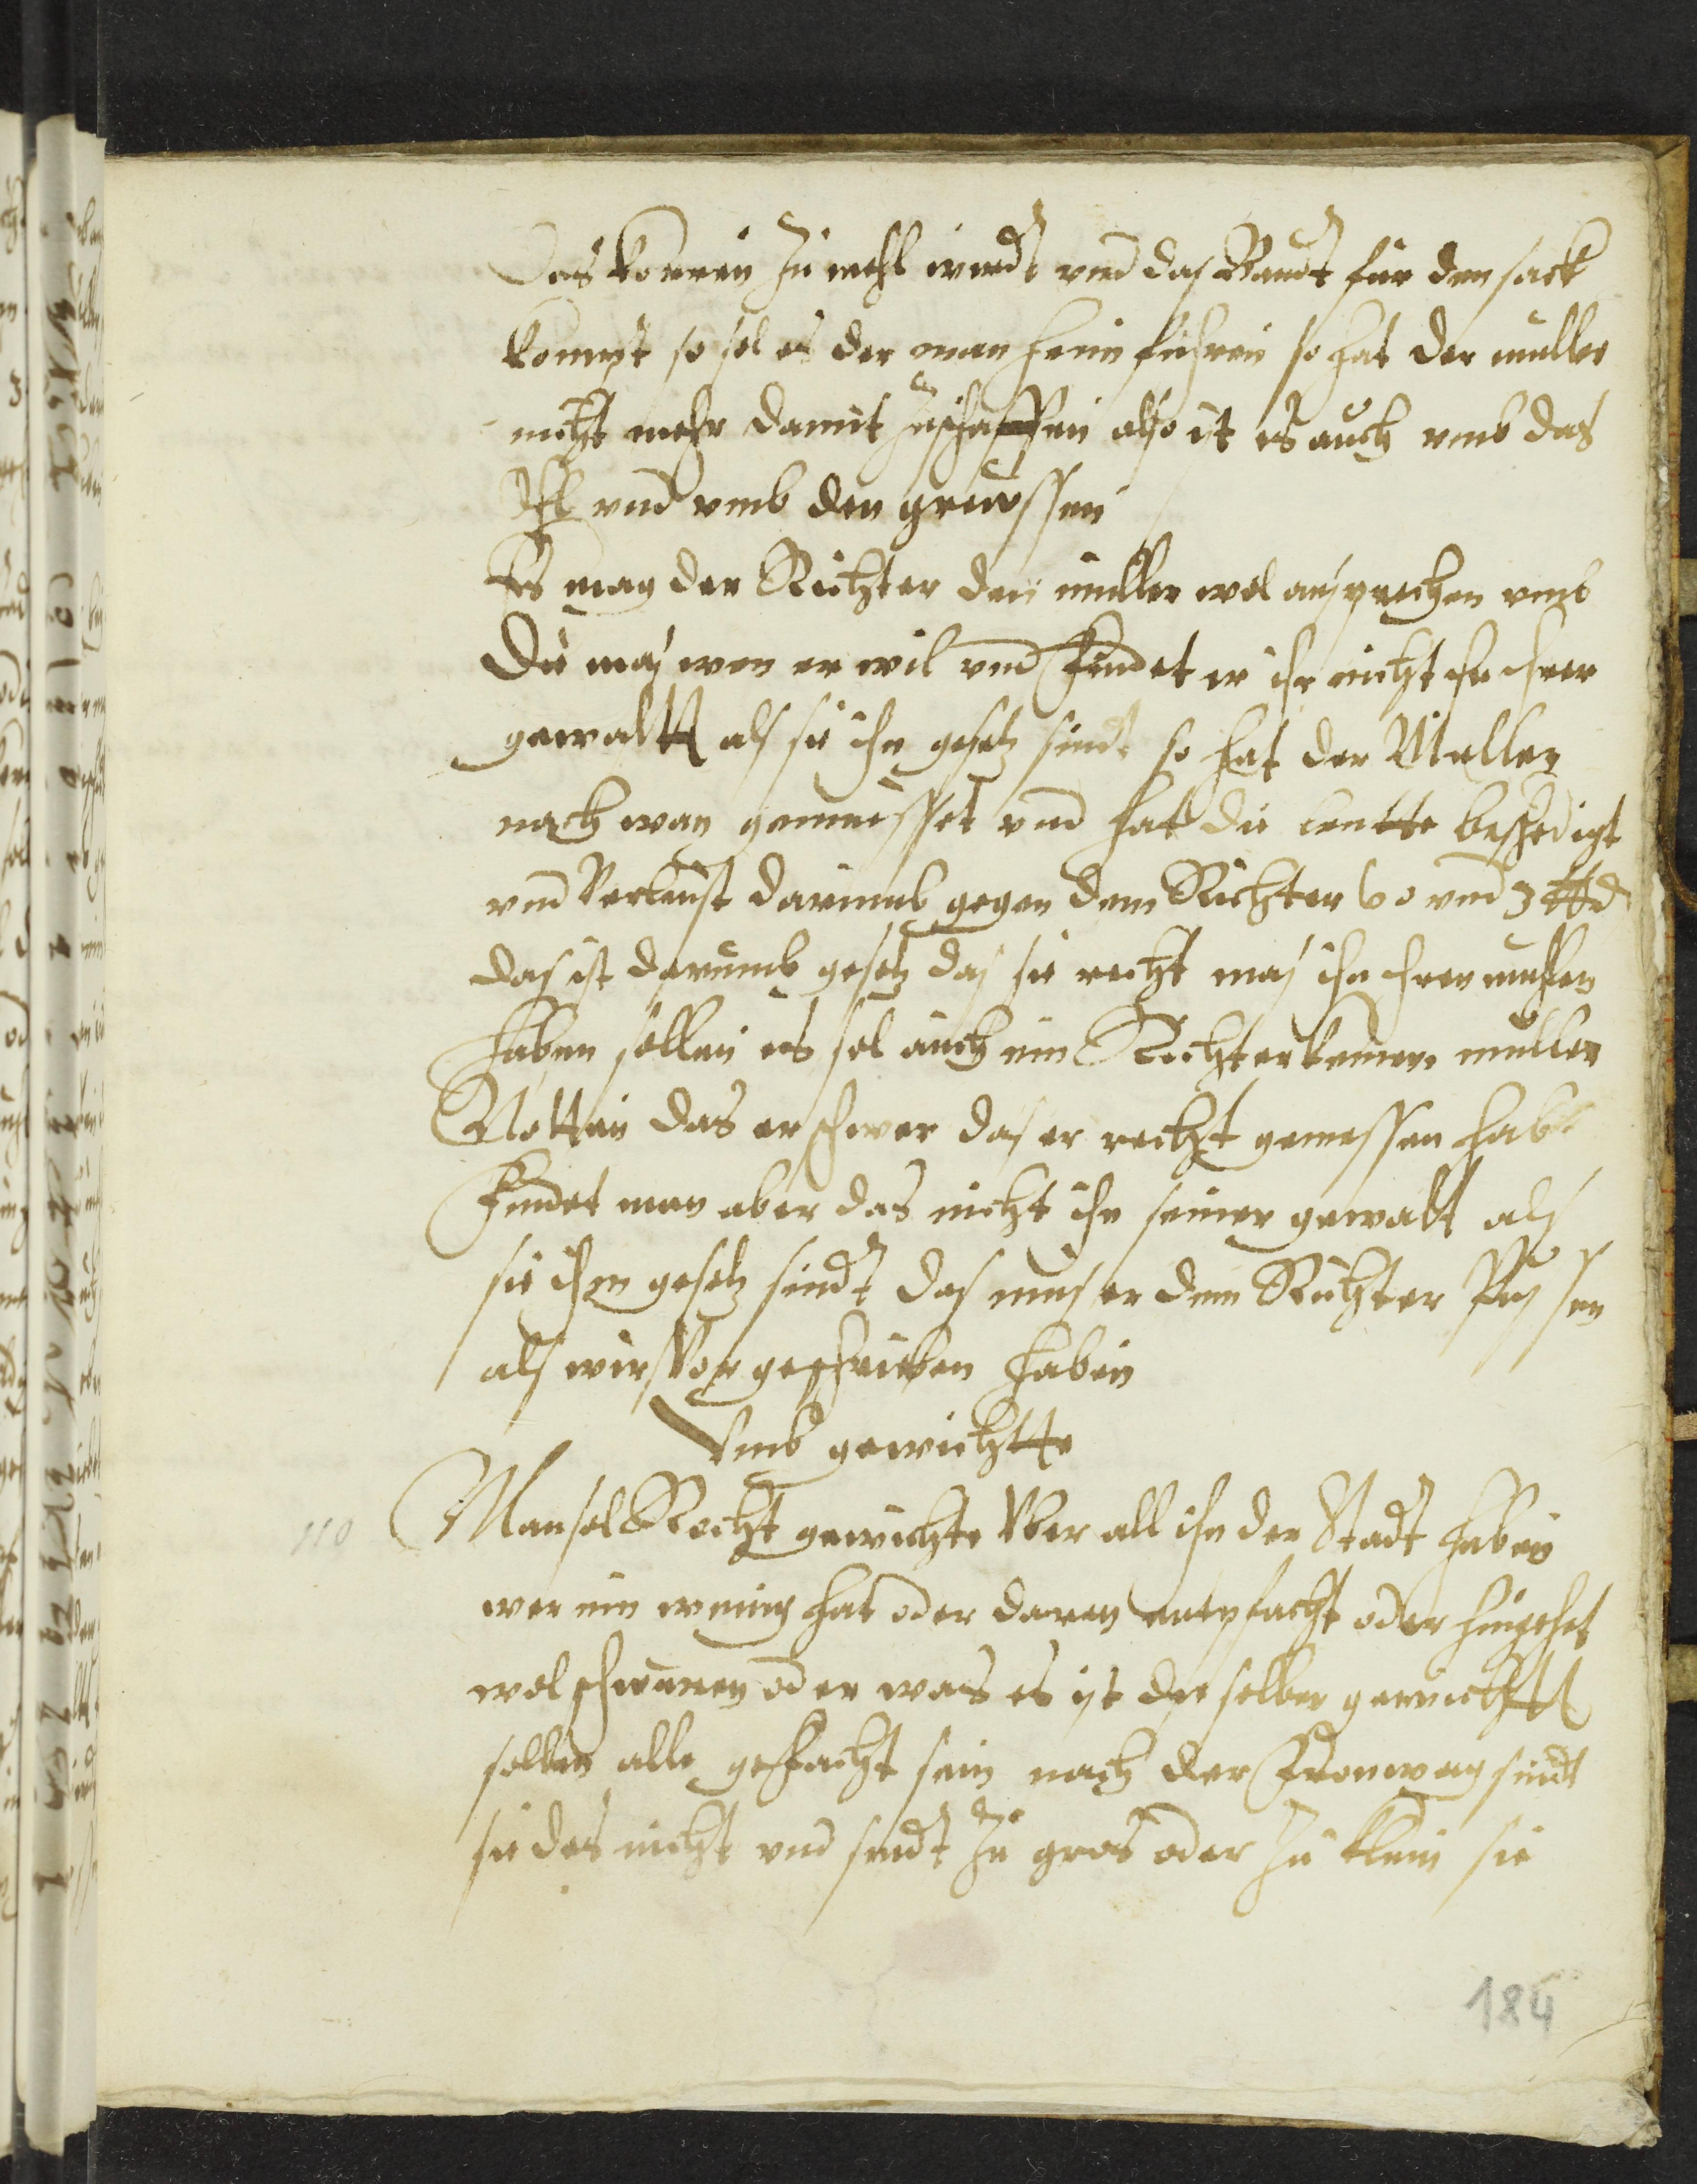 Das korren zu mehl wirdt vnd das Bandt für den sack
kompt so sol es der man heim fuhren so hat der muller
nicht mehr damit zuschaffen also ist es auch vmb das
vnd vmb den greussen
Es mag der Richter den muller wol ansprechen vmb
Die mas wen er wil vnd findet er ihr nicht ihn ihrer
gewaltt als sie ihn gesetz sindt so hat der Muller
nach wan gemeisset vnd hat die leutte beschedigt
vnd Verleust darumb gegen dem Richter 60 vnd 3 ℔ d
das ist darumb gesetz das sie recht mas ihn ihrer mulen
haben sollen es sol auch ein Richter keinen muller
Notten das er schwer das er recht gemessen habe
findet man aber das nicht ihn seiner gewalt als
sie ihm gesetz sindt das mus er dem Richter
als wir Vor geschrieben haben
Vmb gewichtte
110 Man sol Recht gewichte Vber all ihn der Stadt haben
wer ein wening hat oder daran entpfacht oder hingehet
wol schweren oder was es ist die selben gewichtt
sollen alle gepfacht sein nach der Fronwag sindt
sie des nicht vnd sindt zu gros oder zu klein sie
184